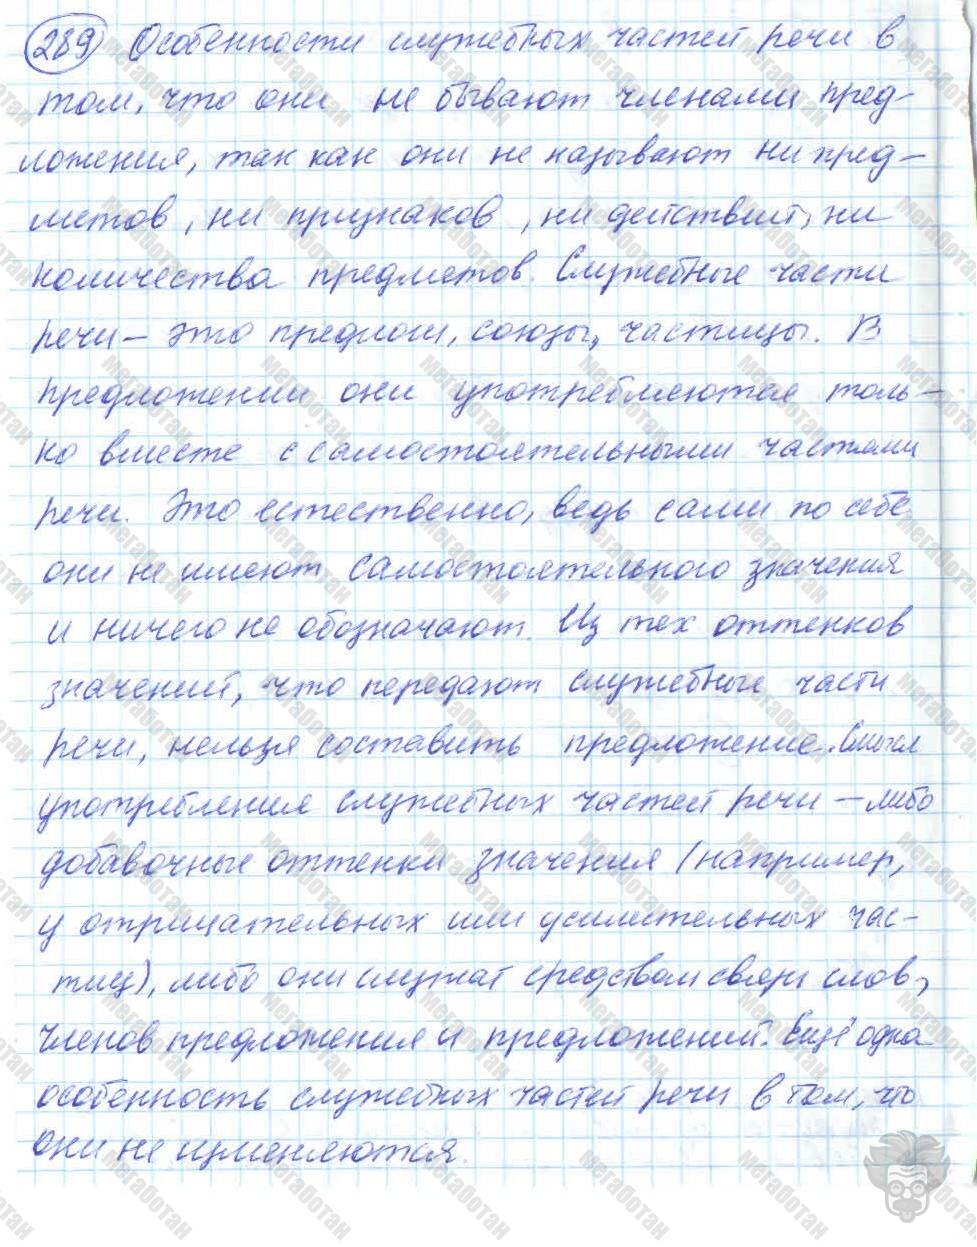 289 Особенности служебных частей речи в
том, что они не бывают членами пред-
ложения, так как они не называют ни пред-
метов, ни признаков, ни действий, ни
количества предметов. Служебные части
речи – это предлоги, союзы, частицы. В
предложении они употребляются толь-
ко вместе с самостоятельными частями
речи. Это естественно, ведь сами по себе
они не имеют самостоятельного значения
и ничего не обозначают. Из тех оттенков
значений, что передают служебные части
речи, нельзя составить предложение. Смысл
употребления служебных частей речи – либо
добавочные оттенки значения (например,
у отрицательных или усилительных час-
тиц), либо они служат средством связи слов,
членов предложения и предложений. Ещё одна
особенность служебных частей речи в том, что
они не изменяются.
мегаботан